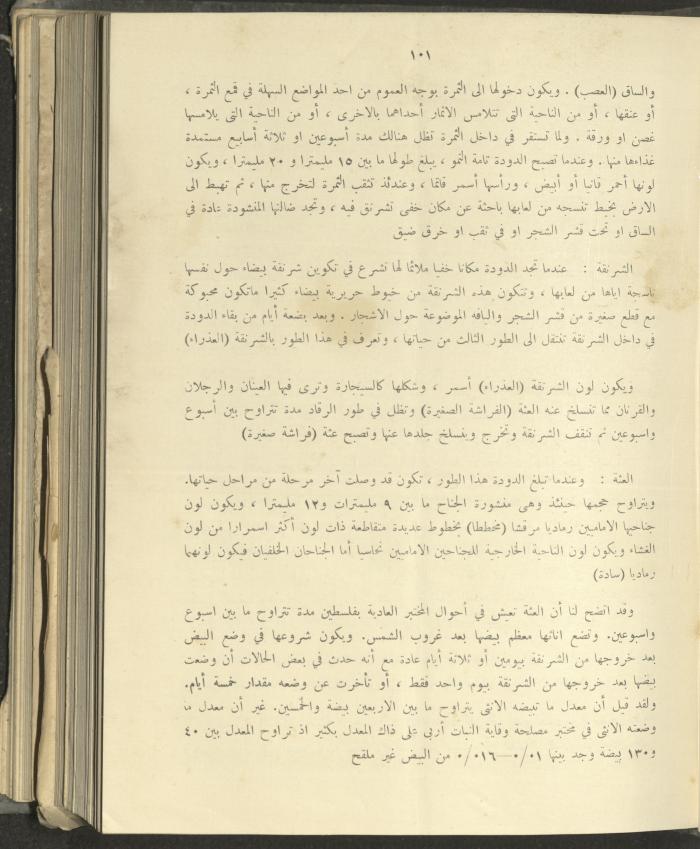 ١٠١
والساق (العصب) . ويكون دخولها الى الثمرة بوجه العموم من احد المواضع السهلة في قمع الثمرة ،
أو عنقها ، أو من الناحية التي تتلامس الاثمار أحداهما بالاخرى ، أو من الناحية التي يلامسها
غصن او ورقة . ولما تستقر في داخل الثمرة تظل هنالك مدة أسبوعين او ثلاثة أسابيع مستمدة
غذاءها منها. وعندما تصبح الدودة تامة النمو ، يبلغ طولها ما بين ١٥ مليمترا و ٢٠ مليمترا ، ويكون
لونها أحمر قانيا أو أبيض ، ورأسها أسمر قاتما ، وعندئذ تثقب الثمرة لتخرج منها ، ثم تهبط الى
الارض بخيط تنسجه من لعابها باحثة عن مكان خفي تشرنق فيه ، وتجد ضالتها المنشودة عادة في
الساق او تحت قشر الشجر او في ثقب او خرق ضيق
الشرنقة : عندما تجد الدودة مكانا خفيا ملائما لها تشرع في تكوين شرنقة بيضاء حول نفسها
ناسجة اياها من لعابها ، وتتكون هذه الشرنقة من خيوط حريرية بيضاء كثيرا ماتكون محبوكة
مع قطع صغيرة من قشر الشجر والياقه الموضوعة حول الاشجار . وبعد بضعة أيام من بقاء الدودة
في داخل الشرنقة تنتقل الى الطور الثالث من حياتها ، وتعرف في هذا الطور بالشرنقة (العذراء)
ويكون لون الشرنقة (العذراء) أسمر ، وشكلها كالسيجارة وترى فيها العينان والرجلان
والقرنان مما تنسلخ عنه العثة (الفراشة الصغيرة) وتظل في طور الرقاد مدة تتراوح بين أسبوع
واسبوعين ثم تنقف الشرنقة وتخرج وينسلخ جلدها عنها وتصبح عثة (فراشة صغيرة)
العثة : وعندما تبلغ الدودة هذا الطور ، تكون قد وصلت آخر مرحلة من مراحل حياتها.
ويتراوح حجمها حينئذ وهي منشورة الجناح ما بين ٩ مليمترات و١٢ مليمترا ، ويكون لون
جناحيها الاماميين رماديا مرقشا (مخططا) بخطوط عديدة متقاطعة ذات لون أكثر اسمرارا من لون
الغشاء ويكون لون الناحية الخارجية للجناحين الاماميين نحاسيا أما الجناحان الخلفيان فيكون لونهما
رماديا (سادة)
وقد اتضح لنا أن العثة تعيش في أحوال المختبر العادية بفلسطين مدة تتراوح ما بين اسبوع
واسبوعين. وتضع اناثها معظم بيضها بعد غروب الشمس. ويكون شروعها في وضع البيض
بعد خروجها من الشرنقة بيومين أو ثلاثة أيام عادة مع أنه حدث في بعض الحالات أن وضعت
بيضها بعد خروجها من الشرنقة بيوم واحد فقط ، أو تأخرت عن وضعه مقدار خمسة أيام.
ولقد قيل أن معدل ما تبيضه الانثى يتراوح ما بين الاربعين بيضة والخمسين. غير أن معدل ما
وضعته الانثى في مختبر مصلحة وقاية النبات أربى على ذاك المعدل بكثير اذ تراوح المعدل بين ٤٠
و١٣٠ بيضة وجد بينها ٠/٠١—٠/٠١٦ من البيض غير ملقح